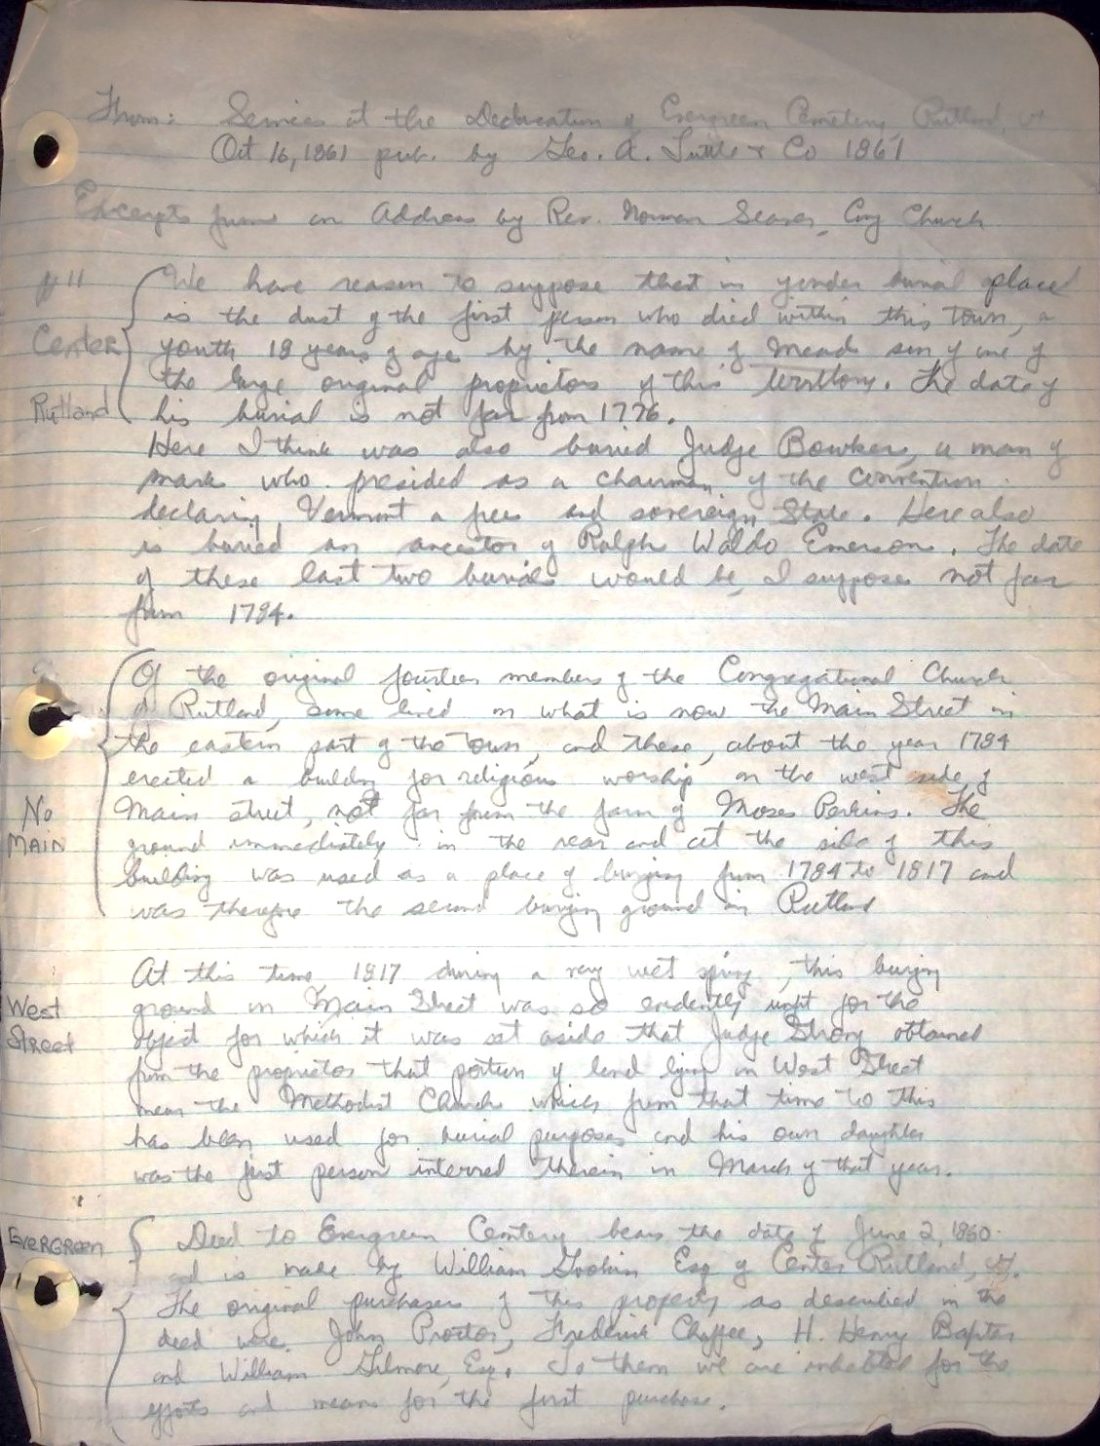 From: Services at the Dedication of Evergreen Cemetery, Rutland, Vt
Oct 16, 1861 pub. by Geo. A. Tuttle & Co 1861
Excerpts from an Address by Rev. Norman Seaver, Cong Church
#11
Center
Rutland
We have reason to suppose that in yonder burial place
is the dust of the first person who died within this town, a
youth 18 years of age by the name of Mead son of one of
the large original proprietors of this territory. The date of
his burial is not far from 1776.
Here I think was also buried Judge Bowker, a man of
mark who presided as a chairman of the convention
declaring Vermont a free and sovereign State. Here also
is buried an ancestor of Ralph Waldo Emerson. The date
of these last two burials would be, I suppose not far
from 1784.
No
MAIN
Of the original fourteen members of the Congregational Church
of Rutland, some lived on what is now the Main Street in
the eastern part of the town, and these, about the year 1784
erected a building for religious worship, on the west side of
Main street, not far from the farm of Moses Perkins. The
ground immediately in the rear and at the side of this
building was used as a place of burying from 1784 to 1817 and
was therefore the second burying ground in Rutland
West
Street
At this time, 1817 during a very wet spring, this burying
ground in Main Street was so evidently unfit for the
object for which it was set aside that Judge Strong obtained
from the proprietor that portion of land lying on West Street
near the Methodist Church which from that time to this
has been used for burial purposes and his own daughter
was the first person interred therein in March of that year.
EVERGREEN
Deed to Evergreen Cemetery bears the date of June 2, 1860
and is made by William Gookin Esq of Center Rutland, Vt.
The original purchasers of this property as described in the
deed were John Proctor, Frederick Chaffee, H. Henry Baxter
and William Gilmore, Esq. To them we are indebted for the
efforts and means for the first purchase.